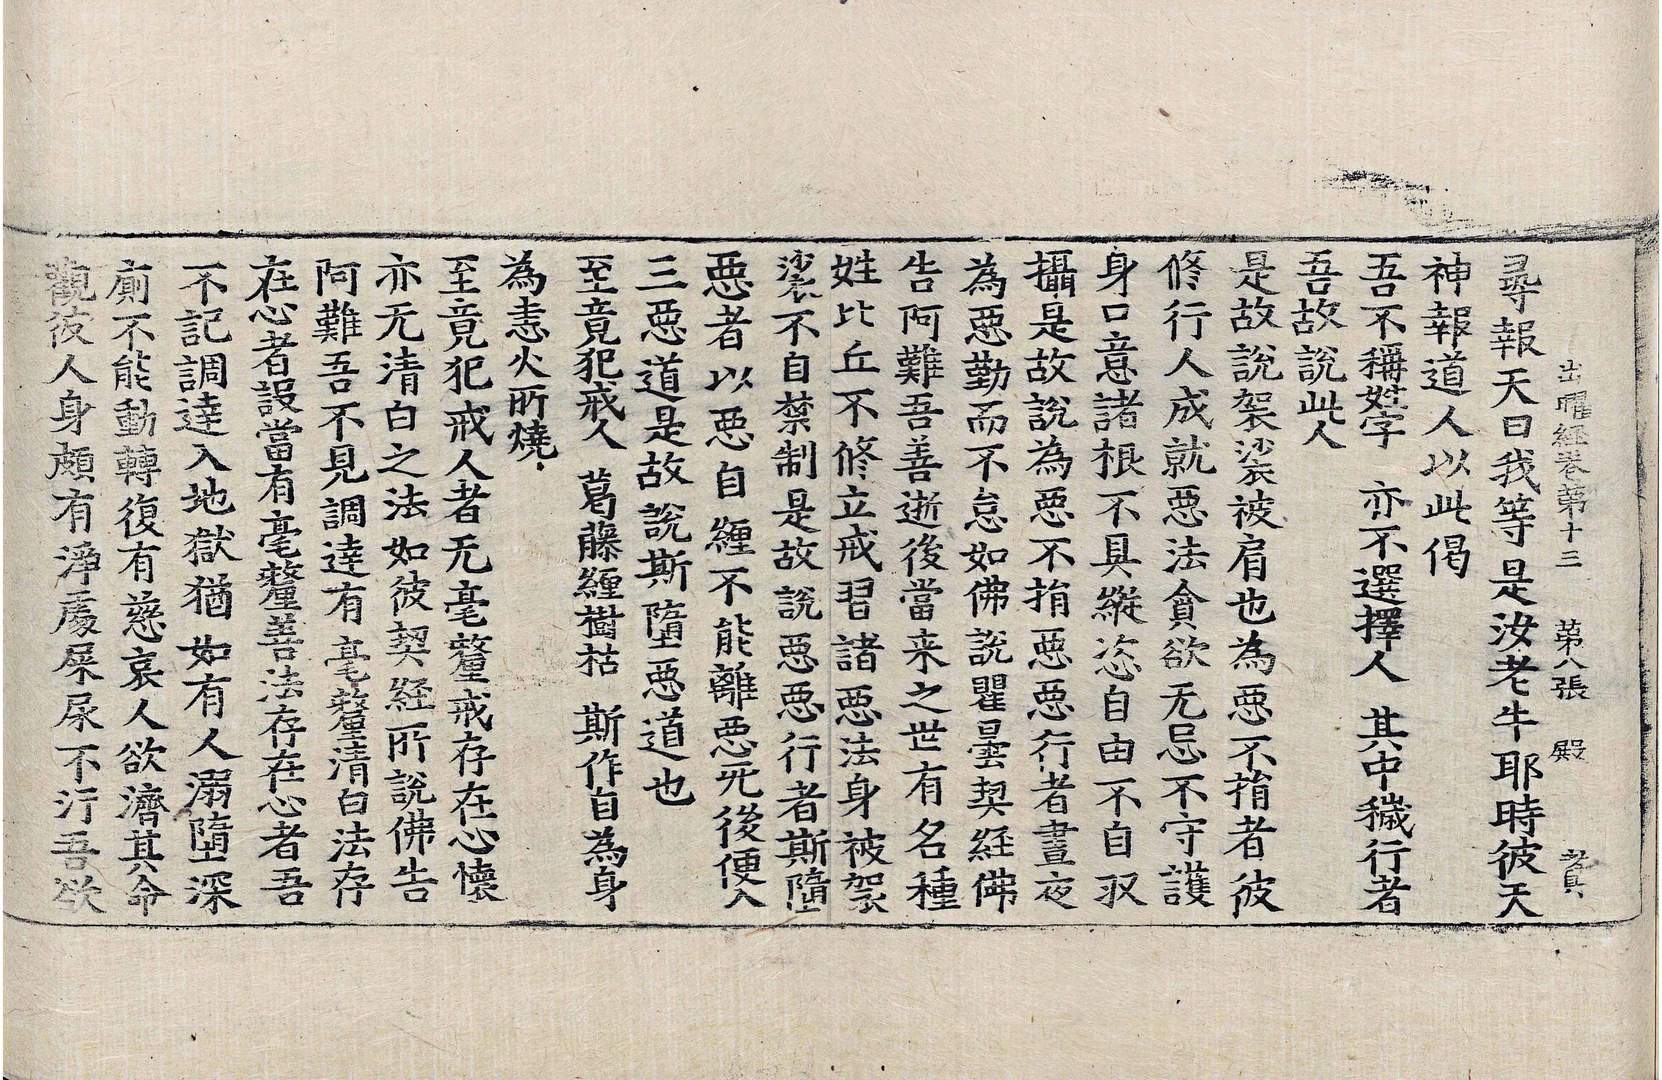 出曜經卷第十三 第八張 殿
尋報天曰我等是汝老牛耶時彼天
神報道人以此偈
吾不稱姓字 亦不選擇人 其中穢行者
吾故說此人
是故說袈裟被肩也為惡不揹者彼
修行人成就惡法貪欲无忌不守護
身口意諸根不具縱恣自由不自収
攝是故說為惡不揹惡惡行者晝夜
為惡勤而不怠如佛說瞿曇契経佛
告阿難吾善逝後當来之世有名種
姓比丘不修立戒習諸惡法身被袈
裟不自禁制是故說惡惡行者斯墮
惡者以惡自纏不能離惡死後便入
三惡道是故說斯墮惡道也
至竟犯戒人 葛藤纏樹枯 斯作自為身
為恚火所燒
至竟犯戒人者无毫釐戒存在心懷
亦无清白之法如彼契経所說佛告
阿難吾不見調達有毫釐清白法存
在心者設當有毫釐善法存在心者吾
不記調達入地獄猶如有人溺墮深
廁不能動轉復有慈哀人欲濟其命
觀彼人身頗有淨處屎尿不汙吾欲